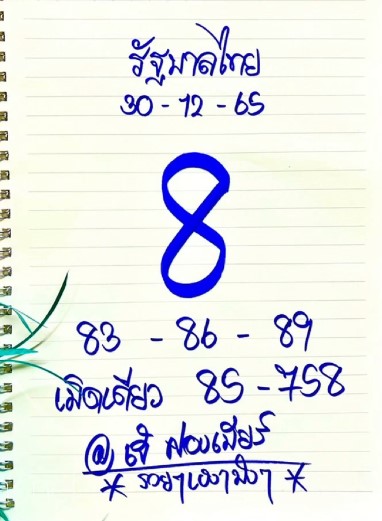 รัฐบาลไทย
30-12-65
8
83 - 86 - 89
เม็ดเดียว 85-758
@เจ๊ ฟองเบียร์
* รวยๆเฮงๆปังๆ *